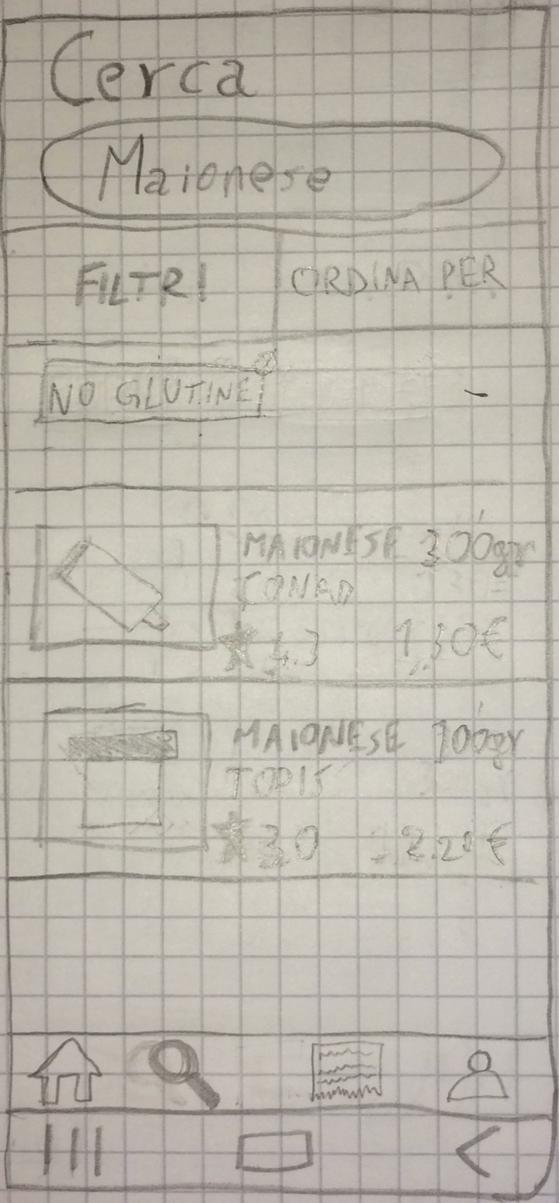 Cerca
Maionese
FILTRI
ORDINA PER
NO GLUTINE
MAIONESE 300gr
CONAD
4.3 1,30€
MAIONESE 100gr
3.0 2.20€